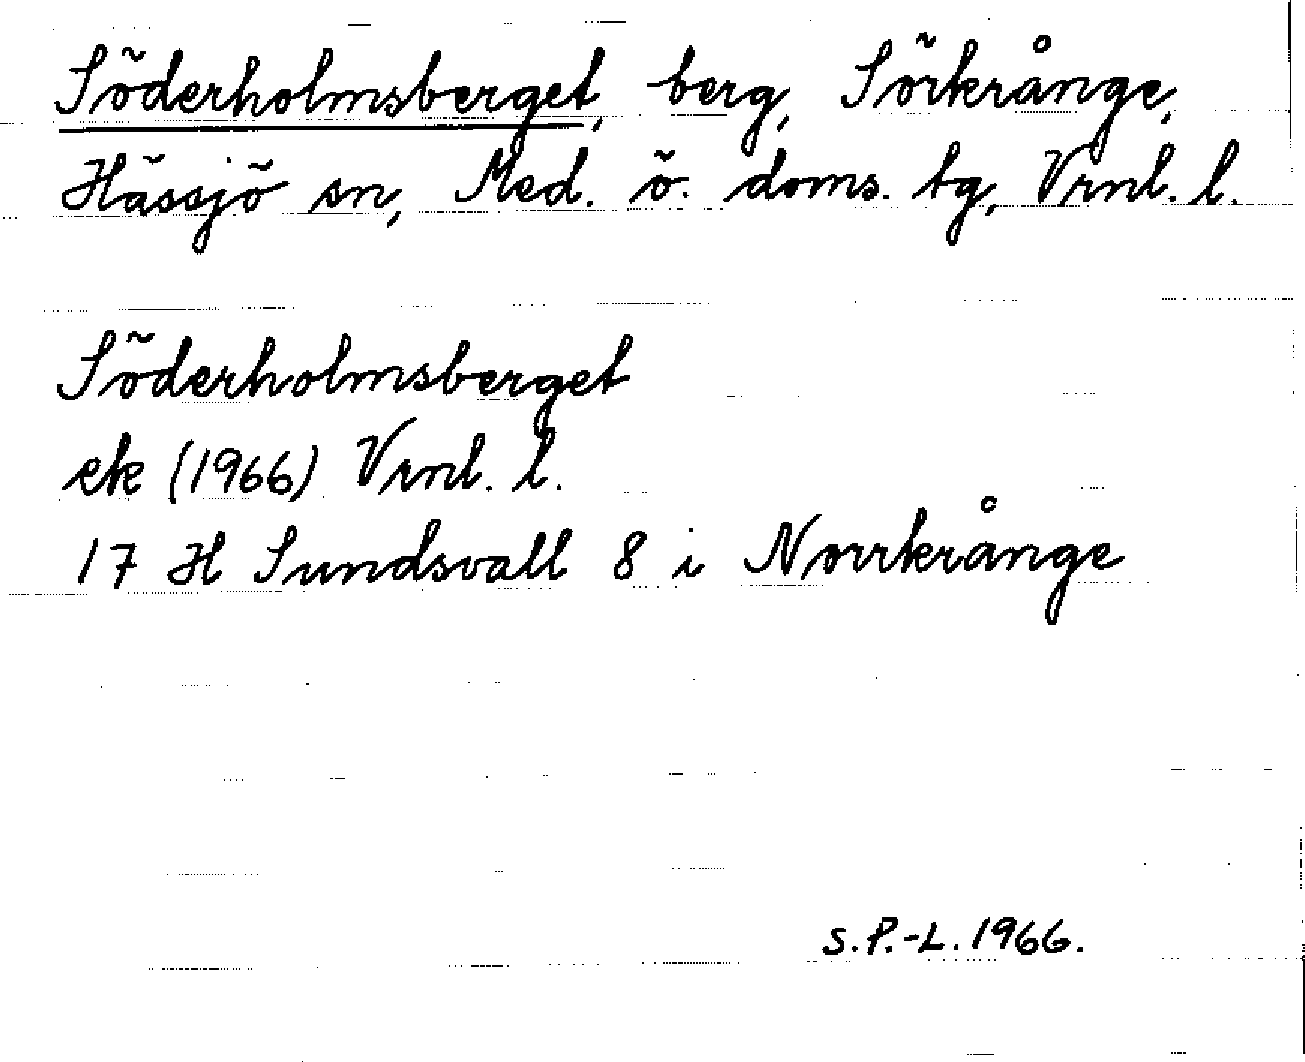 Söderholmsberget, berg, Sörkrånge,
Hässjö sn, Med. ö. doms. tg, Vrnl. l.
Söderholmsberget
ek (1966) Vrnl. l.
17 H Sundsvall 8 i Norrkrånge
S.P.-L. 1966.